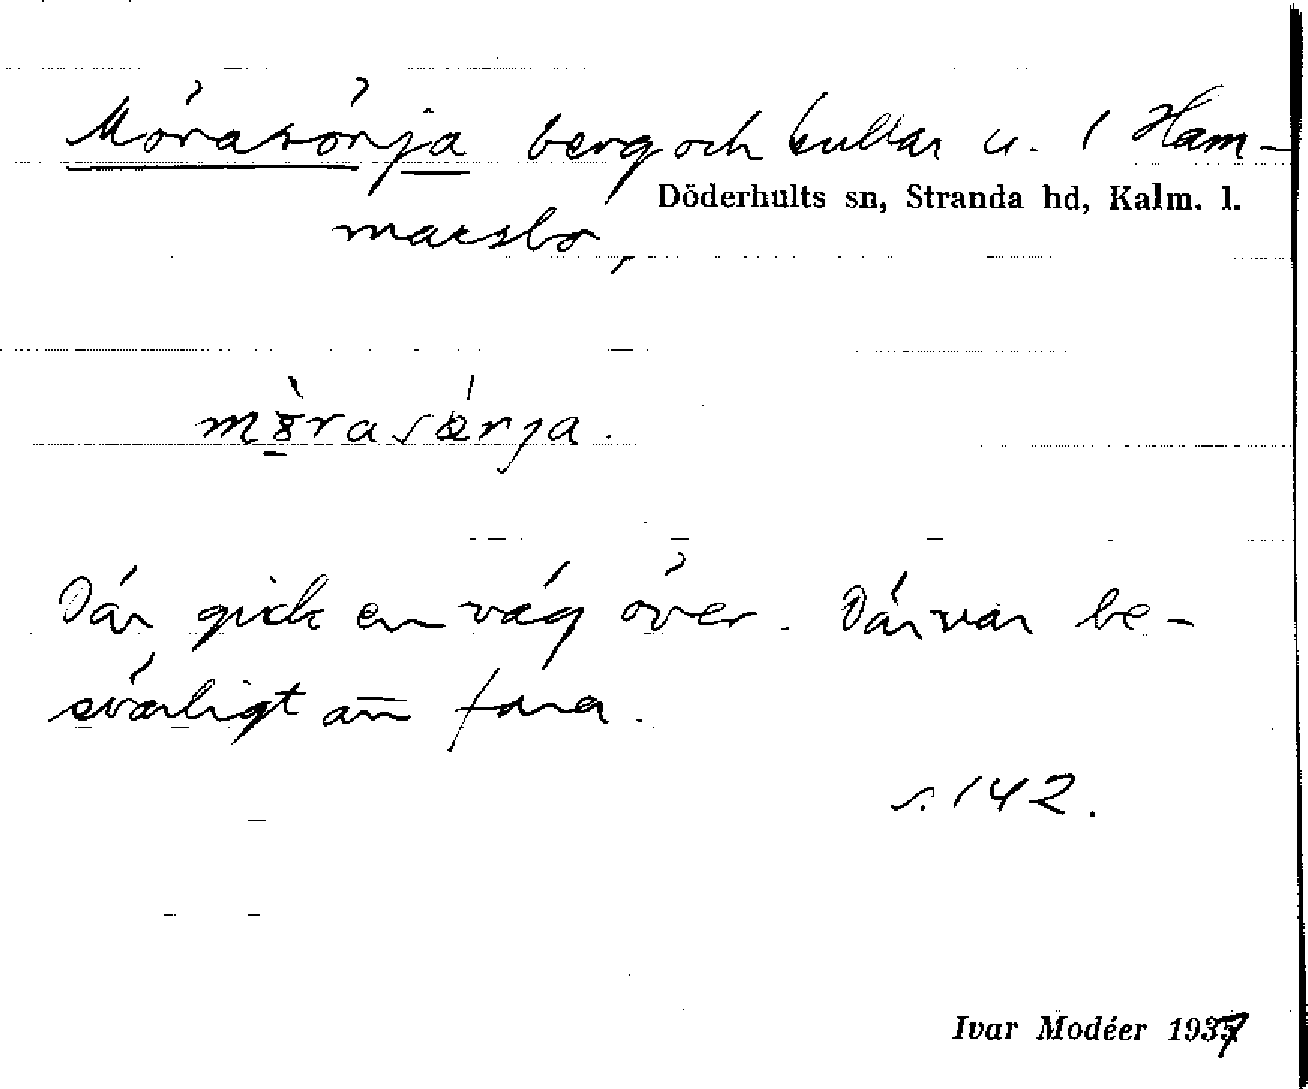 Mörasörja berg och kullar u. 1 Ham-
Döderhults sn, Stranda hd, Kalm. l.
marsbo,
mörasörja.
Där gick en väg över. Där var be-
svärligt att fara.
s. 142.
Ivar Modéer 1937